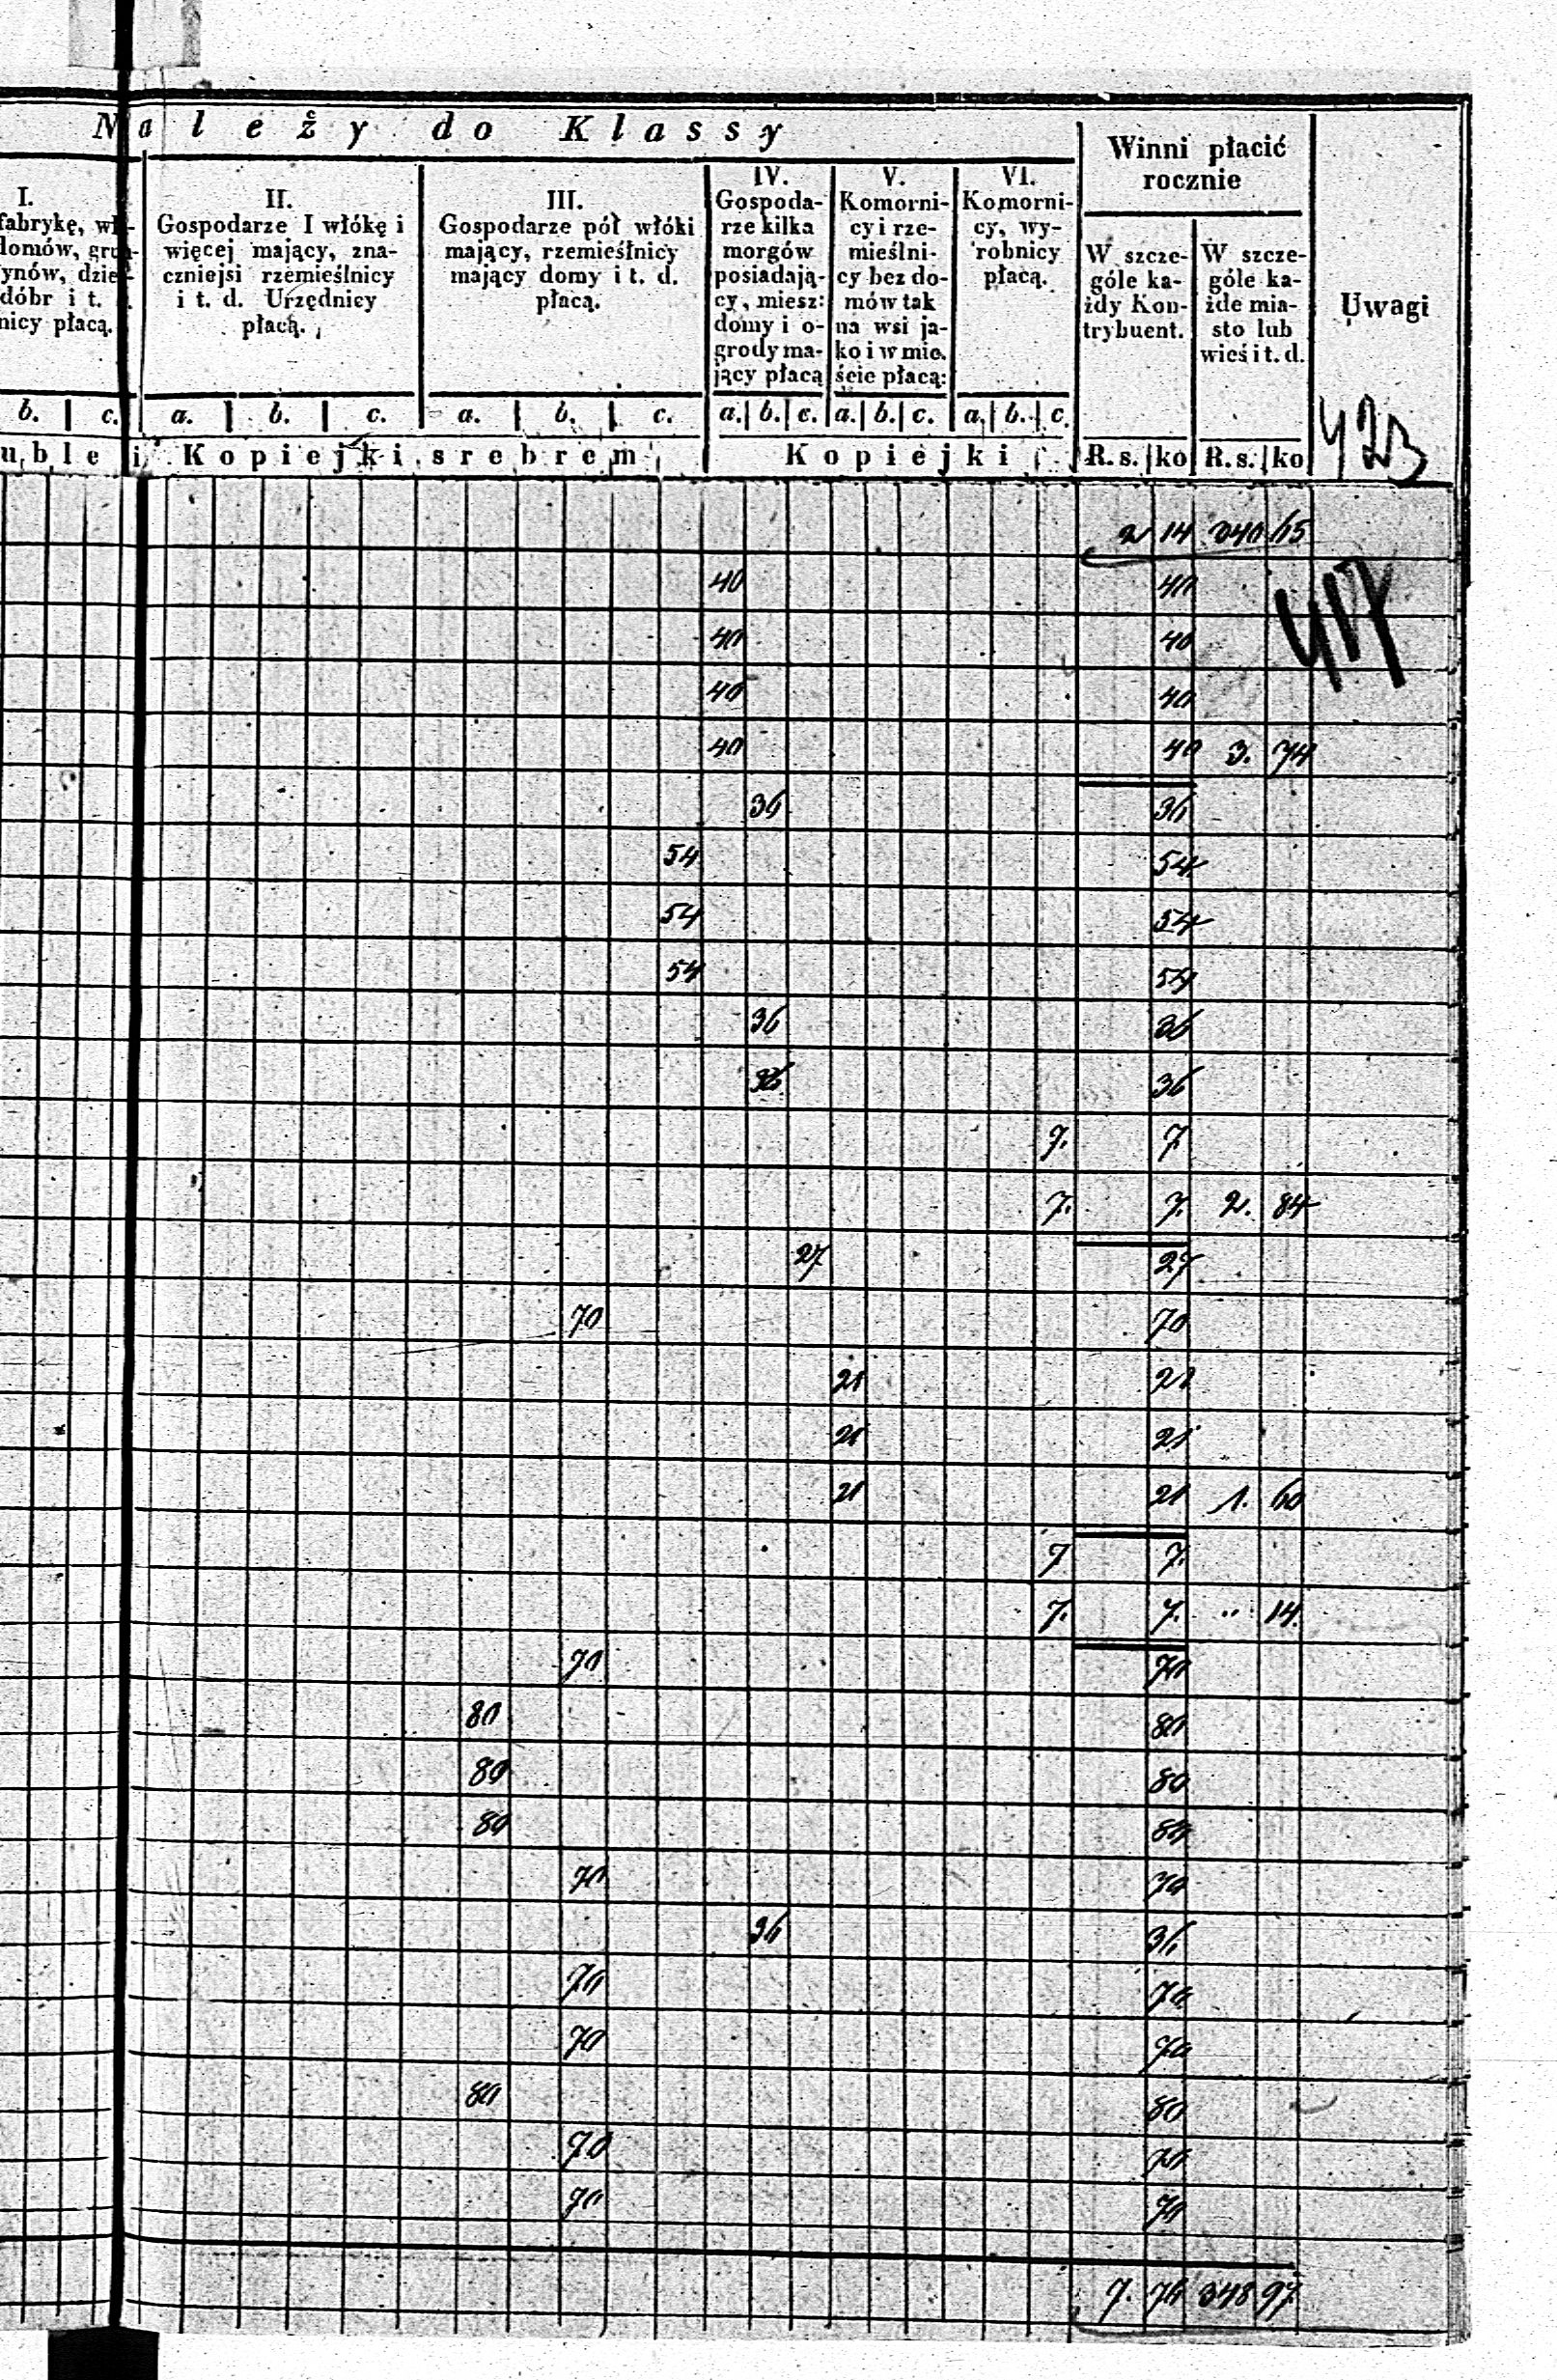 Należy do Klassy
Winni płacić rocznie
Uwagi
I.
fabrykę,
domów,
ynów,
dóbr i t.
nicy płacą.
II.
Gospodarze I włókę i
więcej mający, zna-
czniejsi rzemieślnicy
i t. d. Urzędnicy
płacą.
III.
Gospodarze pół włóki
mający, rzemieślnicy
mający domy i t. d.
płacą.
IV.
Gospoda-
rze kilka
morgów
posiadają-
cy, miesz:
domy i o-
grody ma-
jący płacą
V.
Komorni-
cy i rze-
mieślni-
cy bez do-
mów tak
na wsi ja-
ko i w mie-
ście płacą:
VI.
Komorni-
cy, wy-
robnicy
płacą.
W szcze-
góle ka-
żdy Kon-
trybuent.
W szcze-
góle ka-
żde mia-
sto lub
wieś i t. d.
b. c. a. b. c. a. b. c. a. b. c. a. b. c. a. b. c.
uble i Kopiejki srebrem Kopiejki R. s. ko R. s. ko
423
2 14 340 65
40 40
417
40 40
40 40
40 40 3. 74
36 36
54 54
54 54
54 54
36 36
36 36
7. 7
7. 7. 2. 84
27 27
70 70
21 21
21 21
21 21 1. 60
7 7.
7. 7. " 14.
70 70
80 80
80 80
80 80
70 70
36 36
70 70
70 70
80 80
70 70
70 70
7. 76 348 97